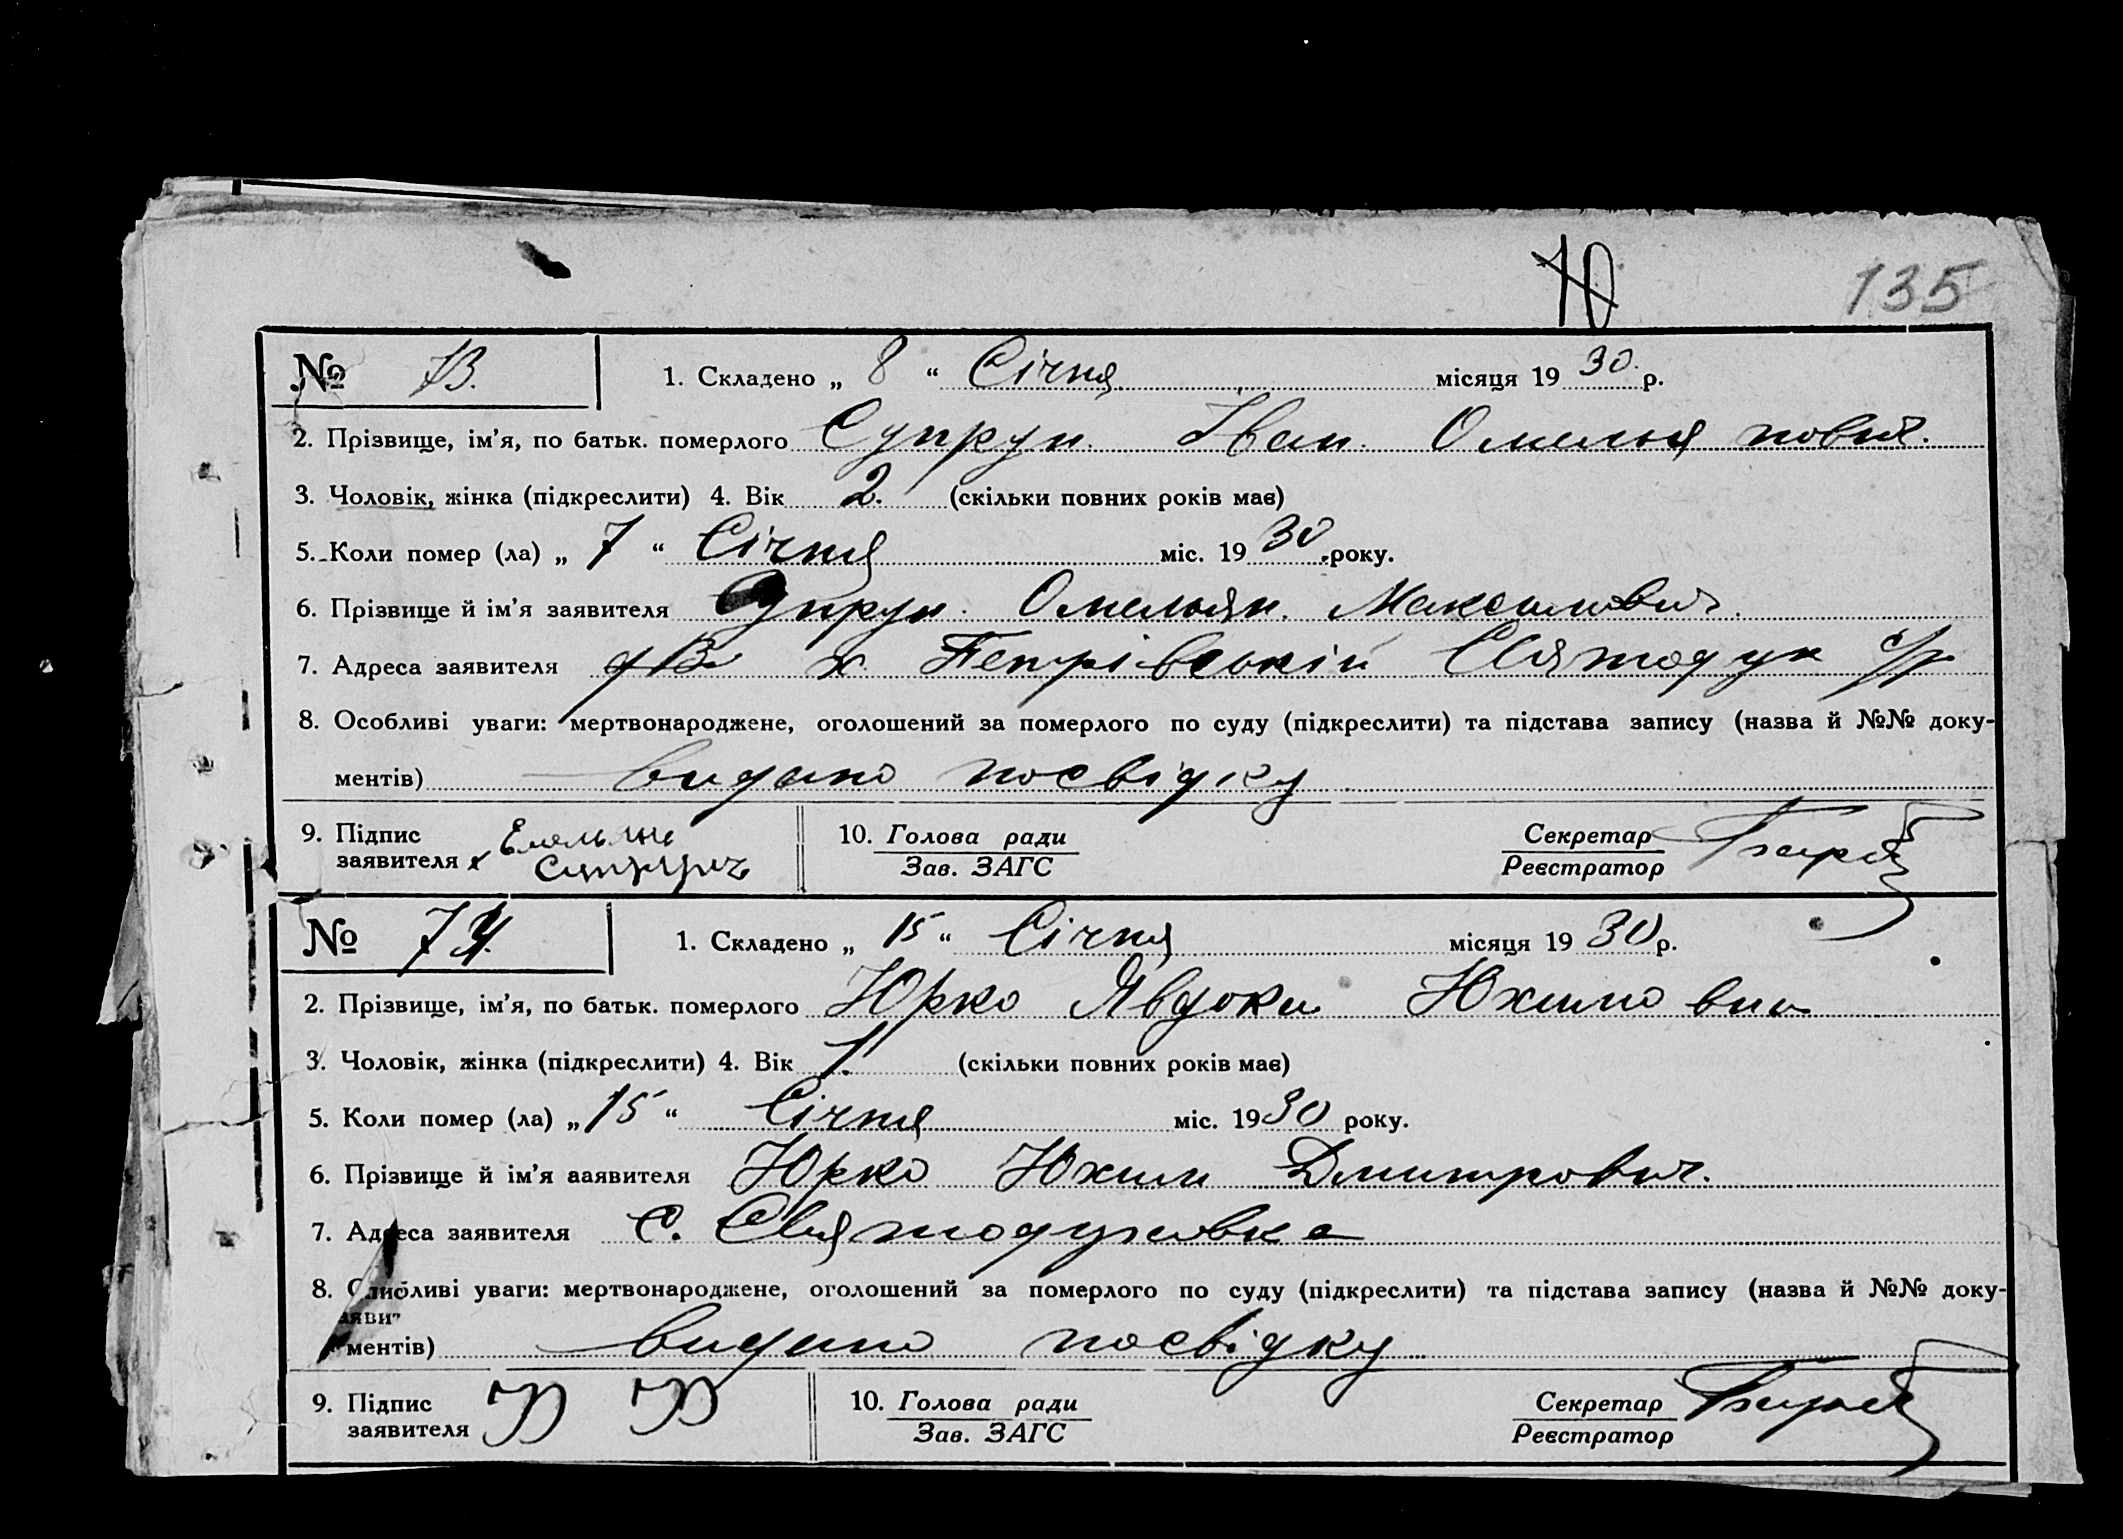 70
135
№ 73. 1. Складено „ 8 “ Січня місяця 19 30 р.
2. Прізвище, ім’я, по батьк. померлого Супрун Іван Омельянович.
3. Чоловік, жінка (підкреслити) 4. Вік 2. (скільки повних років має)
5. Коли помер (ла) „ 7 “ Січня міс. 19 30 року.
6. Прізвище й ім’я заявителя Супрун Омельян Максимович.
7. Адреса заявителя х. Петрівський Святодух с/р
8. Особливі уваги: мертвонароджене, оголошений за померлого по суду (підкреслити) та підстава запису (назва й №№ доку-
ментів) видано посвідку
9. Підпис
заявителя
10. Голова ради
Зав. ЗАГС
Секретар
Реєстратор
№ 74. 1. Складено „ 15 “ Січня місяця 19 30 р.
2. Прізвище, ім’я, по батьк. померлого Юрко Явдоки Юхимовна
3. Чоловік, жінка (підкреслити) 4. Вік 1. (скільки повних років має)
5. Коли помер (ла) „ 15 “ Січня міс. 19 30 року.
6. Прізвище й ім’я заявителя Юрко Юхим Дмитрович.
7. Адреса заявителя с. Святодуховка
8. Особливі уваги: мертвонароджене, оголошений за померлого по суду (підкреслити) та підстава запису (назва й №№ доку-
ментів) видано посвідку
9. Підпис
заявителя
10. Голова ради
Зав. ЗАГС
Секретар
Реєстратор